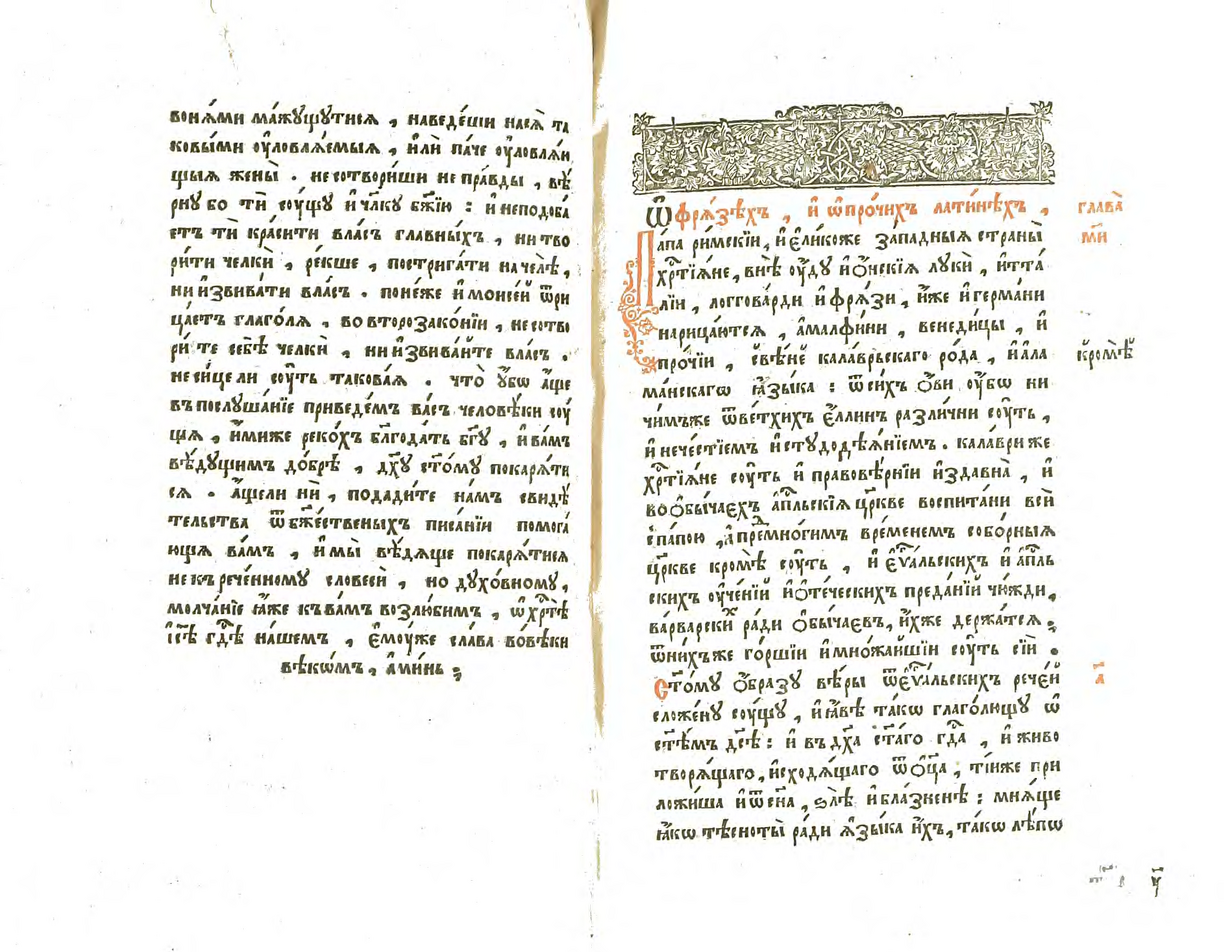 вонѧ́ми ма́жꙋщꙋтисѧ , наведе́ши насѧ̀ та
ковы́ми ᲂу҆ловлѧ́емыѧ , и҆лѝ па́че ᲂу҆ловлѧ́ю
щыѧ жены̀ . несотвори́ши не пра́вды , вѣ́
рнꙋ бо тѝ сꙋ́щꙋ и҆ чл҃кꙋ бж҃їю : и҆ неподоба́
етъ тѝ кра́сити вла́съ главны́хъ , ни тво
ри́ти челкѝ , ре́кше , постриѓати на челѣ̀ ,
ни и҆звива́ти вла́съ . поне́же и҆ моисе́й ѿри
ца́етъ глаго́лѧ , во второзако́нїи , не сотво
ри́ те себѣ̀ челкѝ , ни и҆звива́йте вла́съ .
не си́це ли сꙋ́ть такова́ѧ . что̀ ᲂу҆́бѡ а҆́ще
въ послꙋша́нїе приведе́мъ ва́съ человѣ́ки сꙋ́
щѧ , и҆́миже реко́хъ бл҃года́ть бг҃ꙋ , и҆ ва́мъ
вѣ́дꙋщимъ до́брѣ , дх҃ꙋ ст҃о́мꙋ покарѧ́ти
сѧ . а҆́щели нѝ , подади́те на́мъ свидѣ́
тельства ѿ бж҃е́ственыхъ писа́нїи помога́
ющѧ ва́мъ , и҆ мы̀ вѣ́дѧще покарѧ́тисѧ
не къ рече́нномꙋ словесѝ , но дꙋхо́вномꙋ ,
молча́нїе ꙗ҆́же къ ва́мъ возлю́бимъ , ѡ҆ хрⷭ҇тѣ̀
і҆с҃ѣ гдⷭ҇ѣ на́шемъ , є҆мꙋ́же сла́ва во вѣ́ки
вѣкѡ́мъ , а҆ми́нь ;
Ѿ фрѧ́зѣхъ , и҆ ѡ҆ про́чихъ лати́нѣхъ ,
глава̀
м҃и
Па́па ри́мскїи , и҆ є҆ли́коже за́падныѧ страны̀
хрⷭ҇тїѧ́не , внѣ̀ ᲂу҆́дꙋ и҆ѻ҆́нскїѧ лꙋкѝ , и҆тта́
лїи , логгова́рди и҆ фрѧ́зи , и҆́же и҆ герма́ни
нарица́ютсѧ , а҆малфи́ни , венеди́цы , и҆
про́чїи , свѣ́не кала́врьскаго ро́да , и҆ а҆ла
кромѣ̀
ма́нскагѡ ꙗ҆зы́ка : ѿ си́хъ ѻ҆́ви ᲂу҆́бѡ ни
чи́мъже ѿ ве́тхихъ є҆́ллинъ разли́чни сꙋ́ть ,
и҆ нече́стїемъ и҆ стꙋдодѣѧ́нїемъ . кала́ври же
хрⷭ҇тїѧ́не сꙋ́ть и҆ правовѣ́рнїи и҆здавна̀ , и҆
во ѻ҆бы́чаехъ а҆пⷭ҇льскїѧ цр҃кве воспита́ни всѝ
с па́пою , а҆ премно́гимъ вре́менемъ собо́рныѧ
цр҃кве кромѣ̀ сꙋ́ть , и҆ є҆ѵⷢ҇а́льскихъ и҆ а҆пⷭ҇ль
скихъ ᲂу҆че́нїй и҆ ѻ҆те́ческихъ преда́нїй чю́жди ,
ва́рварскихъ ра́ди ѻ҆бы́чаевъ , и҆́хже держа́тсѧ ;
ѿ ни́хъже го́ршїи и҆ множа́йшїи сꙋ́ть сїѝ .
Ст҃о́мꙋ ѻ҆́бразꙋ вѣ́ры ѿ є҆ѵⷢ҇а́льскихъ рече́й
а҃
сложе́нꙋ сꙋ́щꙋ , и҆ ꙗ҆́вѣ та́кѡ глаго́лющꙋ ѡ҆
ст҃ѣ́мъ дс҃ѣ : и҆ въ дх҃а ст҃а́го гдⷭ҇а , и҆ живо
творѧ́щаго , и҆сходѧ́щаго ѿ ѻ҆ц҃а̀ , ті́иже при
ложи́ша и҆ ѿ сн҃а , ѕлѣ̀ и҆ бла́зненѣ : мнѧ́ще
ꙗ҆́кѡ тѣсноты̀ ра́ди ѧ҆зы́ка и҆́хъ , та́кѡ лѣ́пѡ